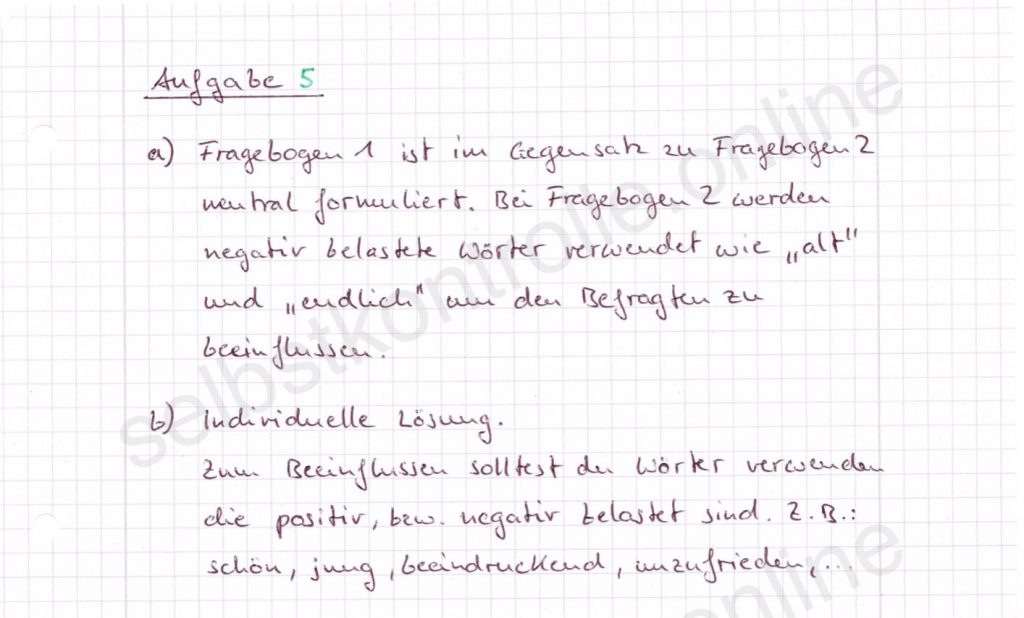 Aufgabe 5
a) Fragebogen 1 ist im Gegensatz zu Fragebogen 2
neutral formuliert. Bei Fragebogen 2 werden
negativ belastete Wörter verwendet wie „alt"
und „endlich" um den Befragten zu
beeinflussen.
b) Individuelle Lösung.
Zum Beeinflussen solltest du Wörter verwenden
die positiv, bzw. negativ belastet sind. Z.B.:
schön, jung, beeindruckend, unzufrieden,...
selbstkontrolle.online
online